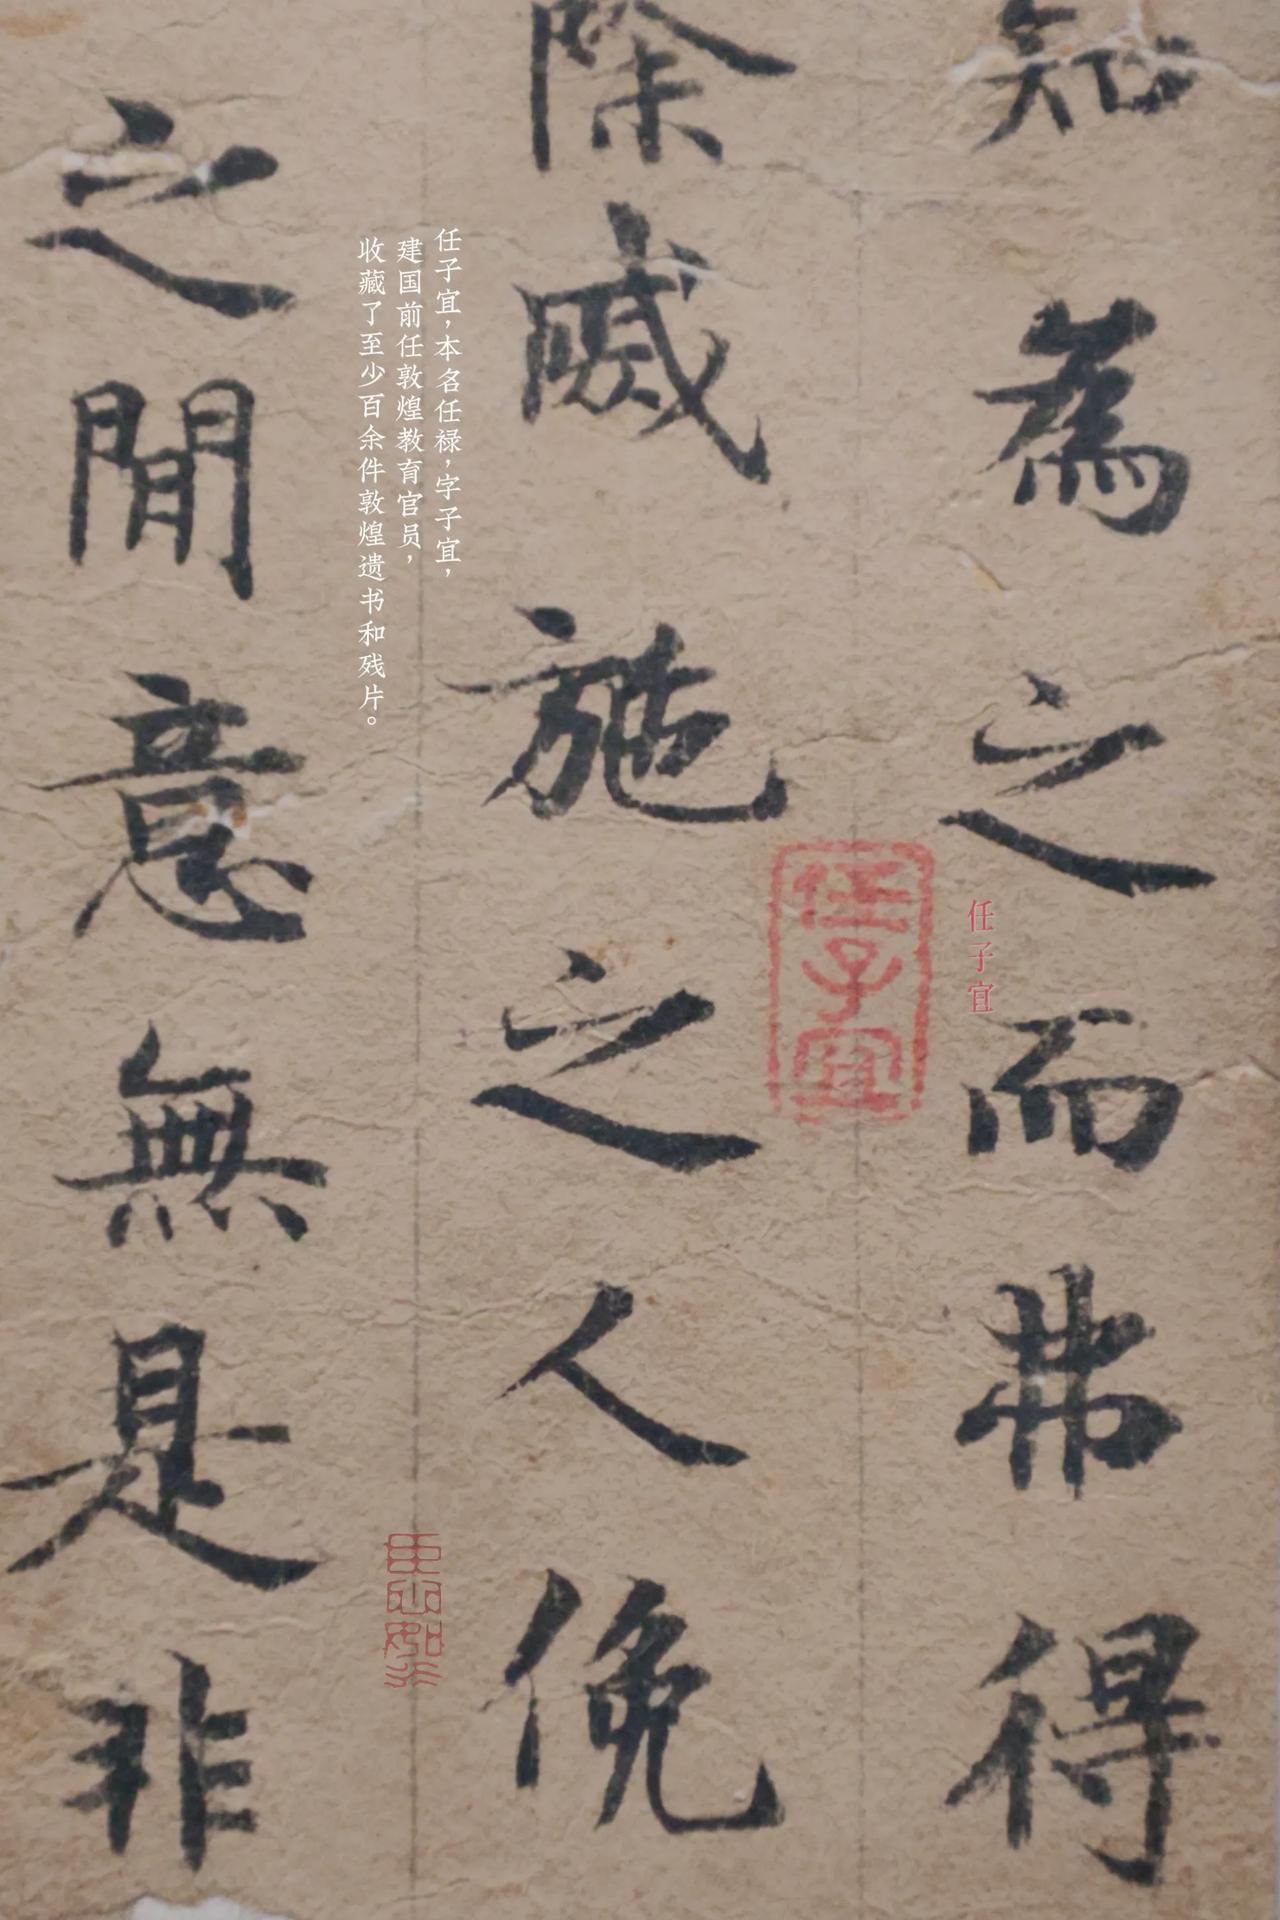 知為之而弗得
任子宜
任子宜
除戚施之人俛
任子宜,本名任禄,字子宜,
建国前任敦煌教育官员,
收藏了至少百余件敦煌遗书和残片。
之閒意無是非